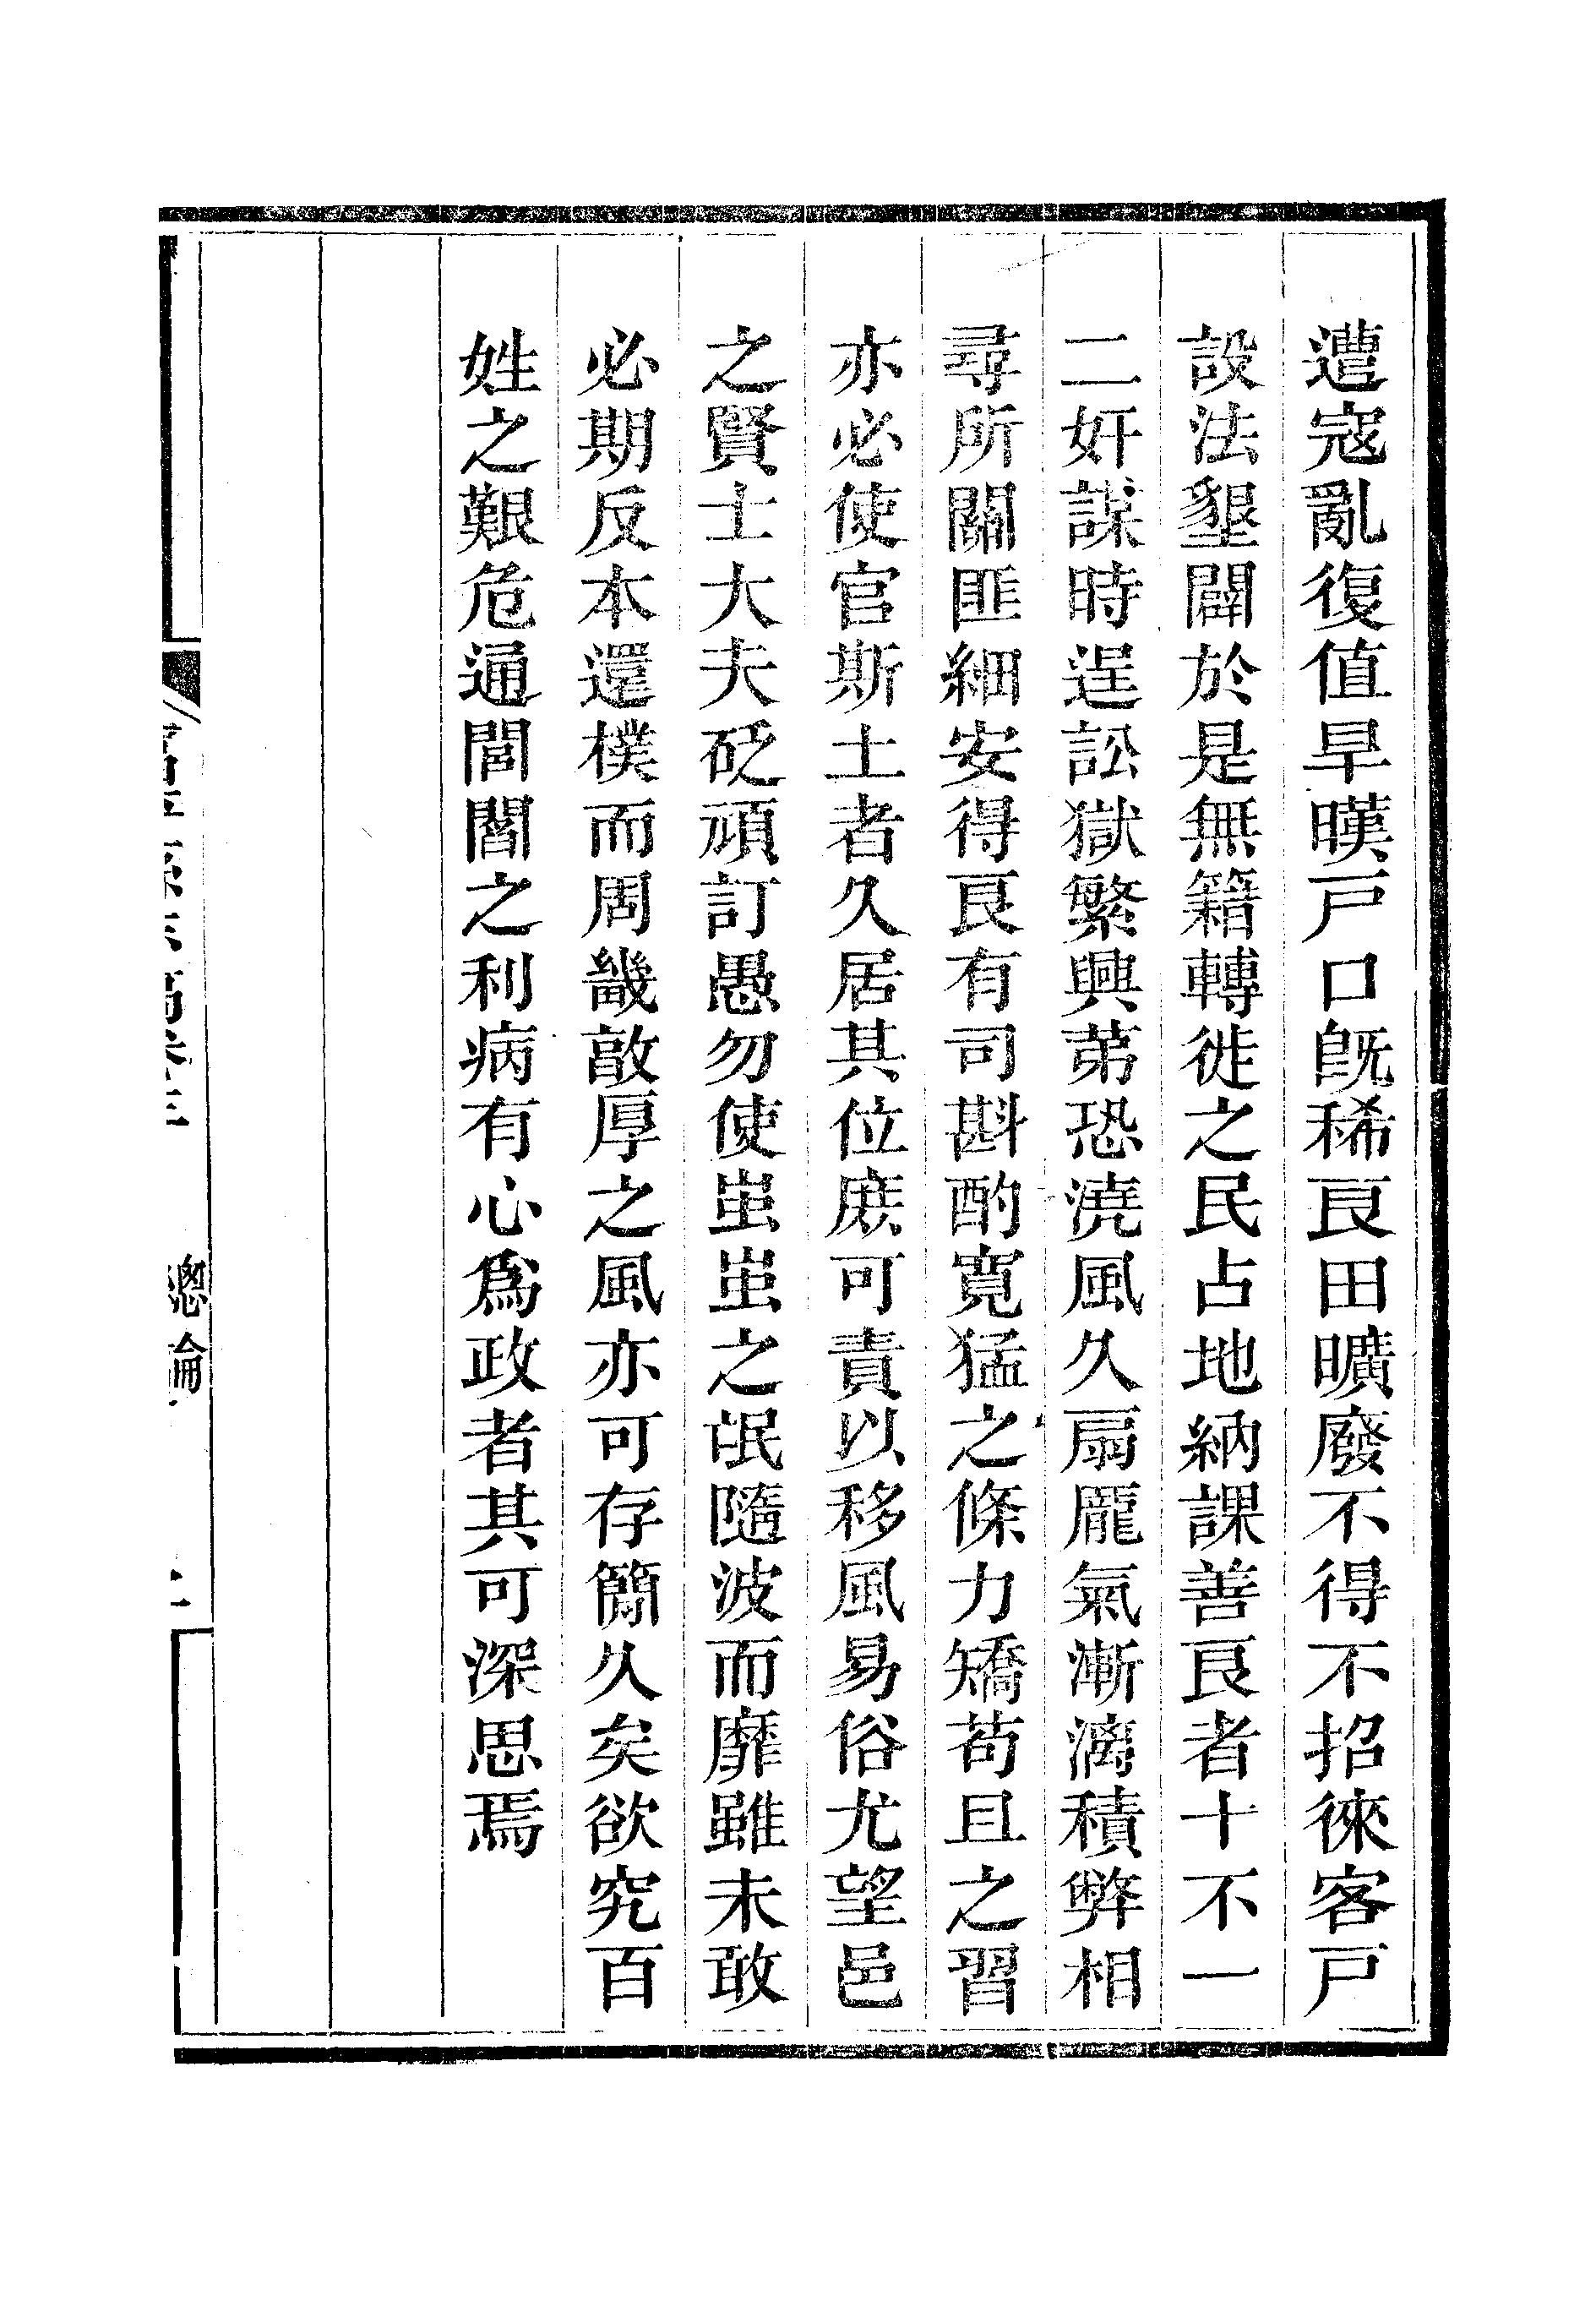 遭寇亂復值旱暵戸口旣稀良田曠廢不得不招徠客戸
設法墾闢於是無籍轉徙之民占地納課善良者十不一
二奸謀時逞訟獄繁興苐恐澆風久扇龎氣漸漓積弊相
尋所關匪細安得良有司斟酌寛猛之條力矯苟且之習
亦必使官斯土者久居其位庶可責以移風易俗尤望邑
之賢士大夫砭頑訂愚勿使蚩蚩之氓隨波而靡雖未敢
必期反本還樸而周畿敦厚之風亦可存簡久矣欲究百
姓之艱危通閭閻之利病有心爲政者其可深思焉
總論